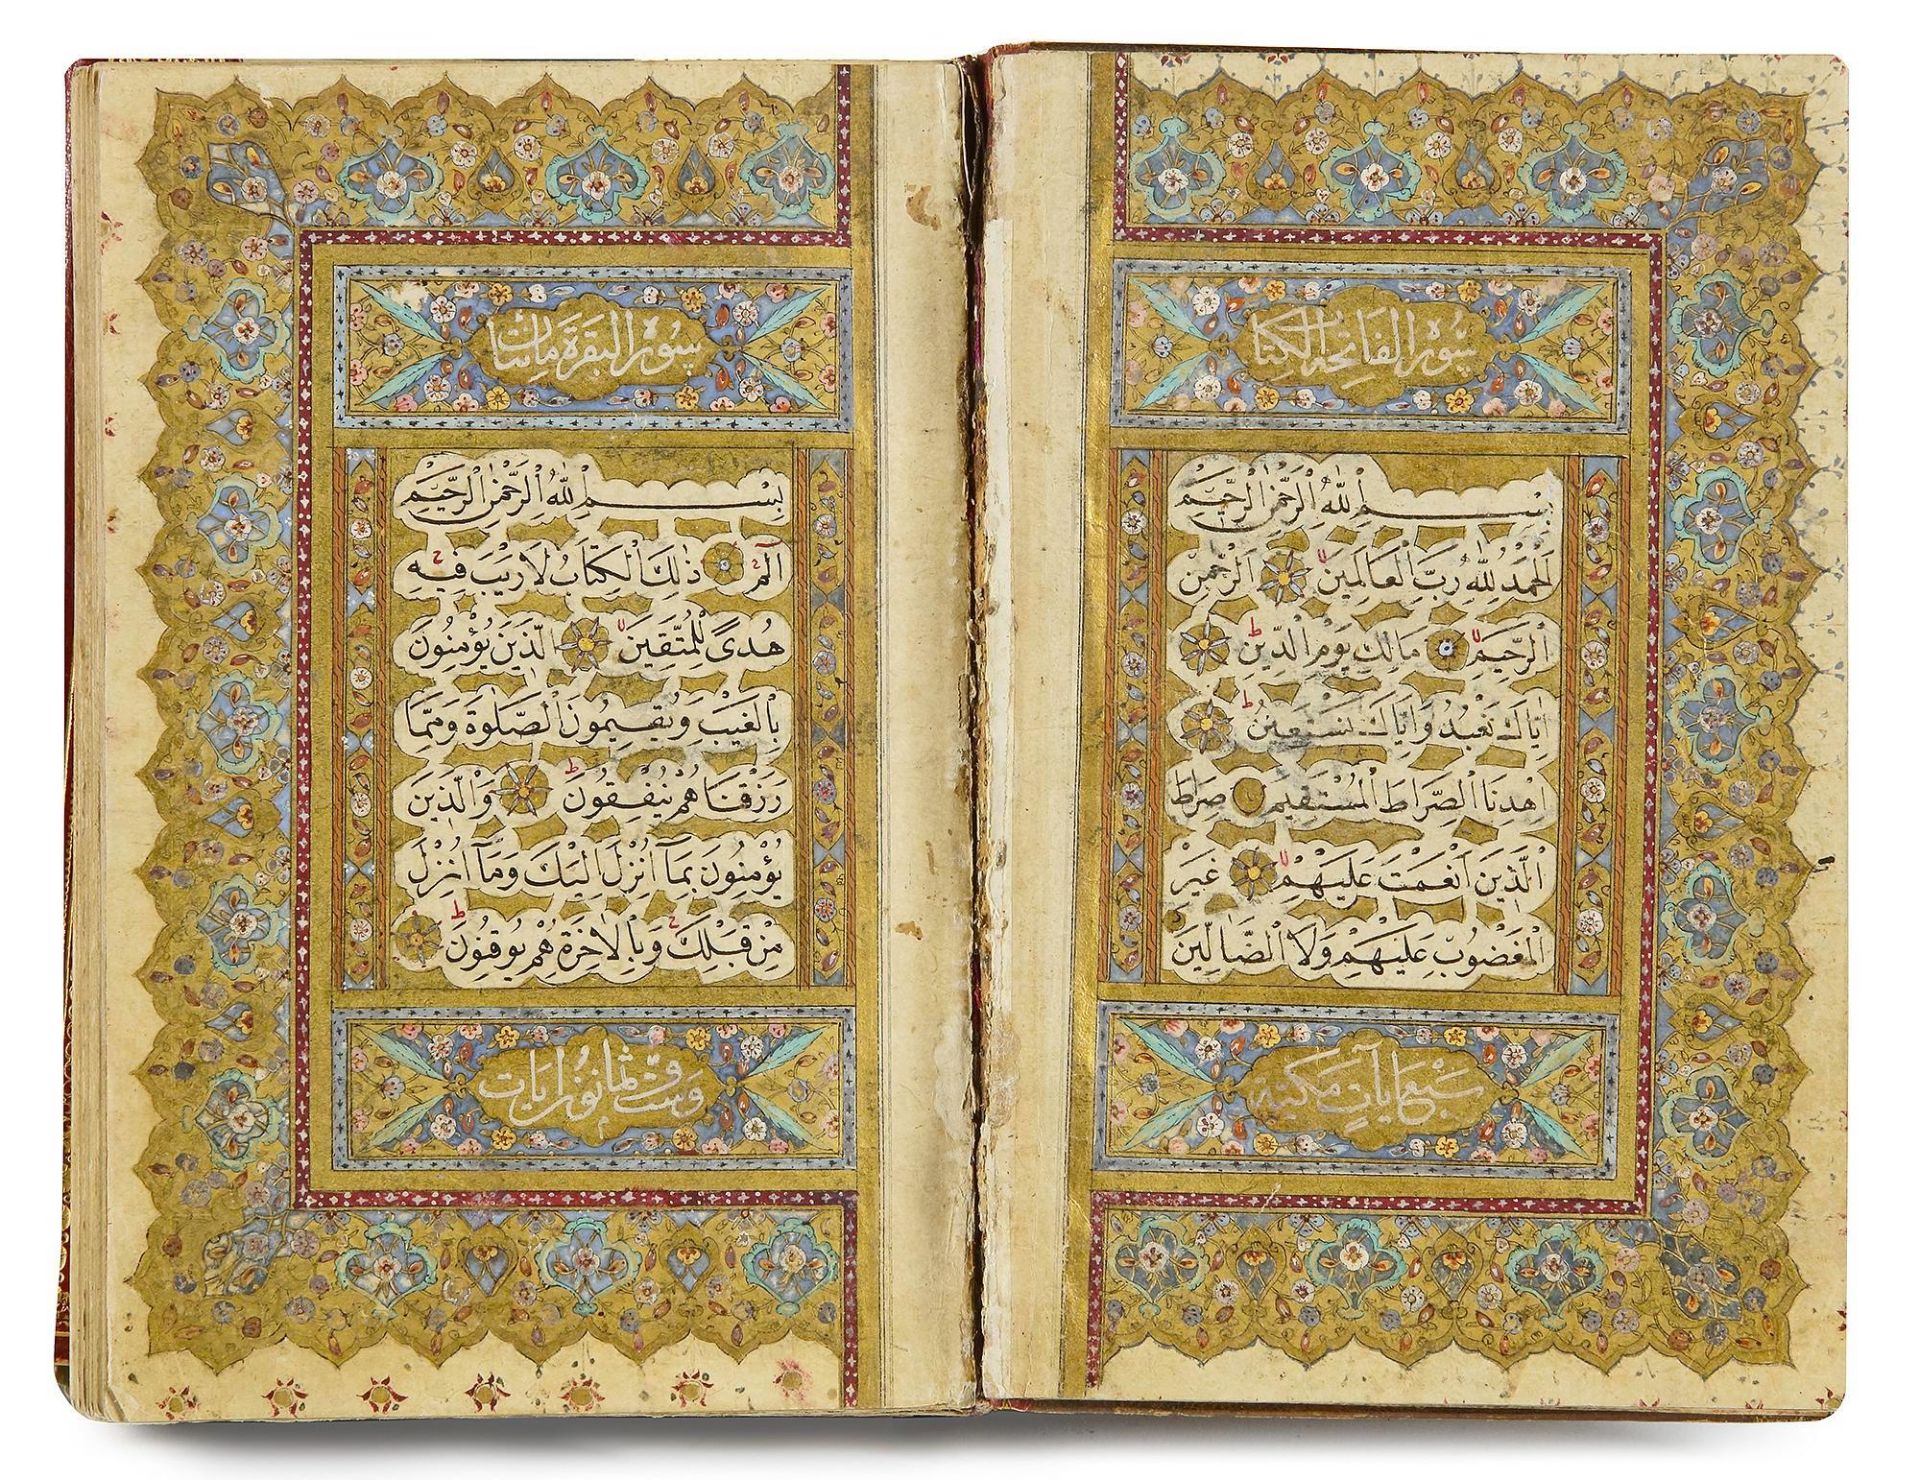 سورة الفاتحة الكتاب
بِسْمِ اللّٰهِ الرَّحْمٰنِ الرَّحِيمِ
اَلْحَمْدُ لِلّٰهِ رَبِّ الْعَالَمِينَ ۙ اَلرَّحْمٰنِ
الرَّحِيمِ ۙ مَالِكِ يَوْمِ الدِّينِ ط
اِيَّاكَ نَعْبُدُ وَاِيَّاكَ نَسْتَعِينُ ط
اِهْدِنَا الصِّرَاطَ الْمُسْتَقِيمَ صِرَاطَ
الَّذِينَ اَنْعَمْتَ عَلَيْهِمْ ۙ غَيْرِ
الْمَغْضُوبِ عَلَيْهِمْ وَلَا الضَّالِّينَ
سبع آيات مكية
سورة البقرة مائتان
بِسْمِ اللّٰهِ الرَّحْمٰنِ الرَّحِيمِ
الٓمٓ ج ذٰلِكَ الْكِتَابُ لَا رَيْبَ فِيهِ ج
هُدًى لِلْمُتَّقِينَ ۙ اَلَّذِينَ يُؤْمِنُونَ
بِالْغَيْبِ وَيُقِيمُونَ الصَّلٰوةَ وَمِمَّا
رَزَقْنَاهُمْ يُنْفِقُونَ ط وَالَّذِينَ
يُؤْمِنُونَ بِمَآ اُنْزِلَ اِلَيْكَ وَمَآ اُنْزِلَ
مِنْ قَبْلِكَ ج وَبِالْاٰخِرَةِ هُمْ يُوقِنُونَ ط
وست وثمانون آيات